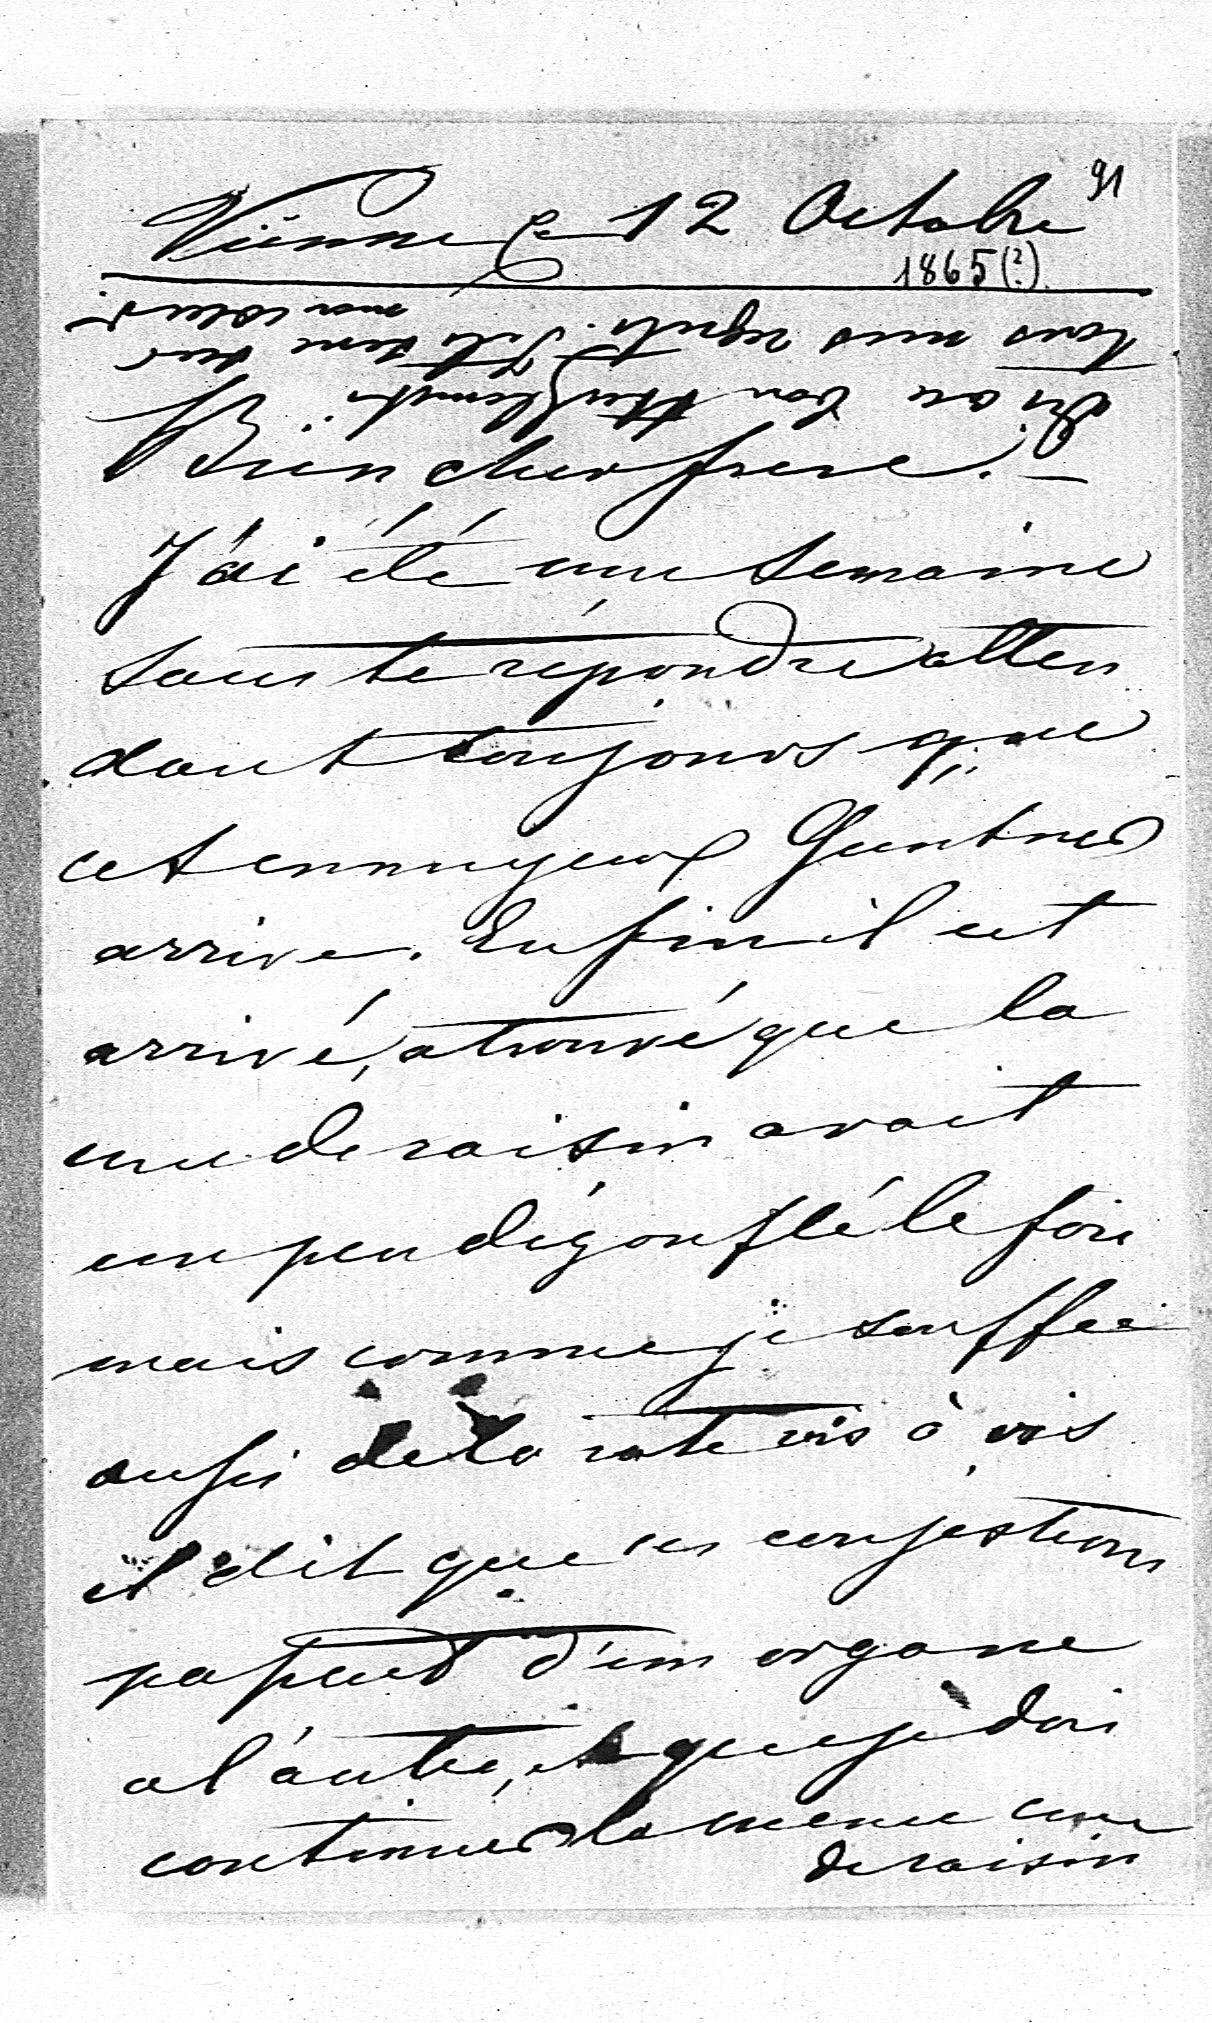 91
Vienne le 12 Octobre
1865(?)
Dis au bon
tous mes regrets.
Bien cher frere. –
J'ai été une semaine
sans te répondre atten
dant toujours que
cet ennuyeux Guntner
arrive. Enfin il est
arrivé, a trouvé que la
cure de raisin avait
un peu dégonflé le foie
mais comme je souffre
aussi de la rate vis à vis
il dit que ces congestions
passent d'un organe
a l'autre, et que je dois
continuer la meme cure
de raisin